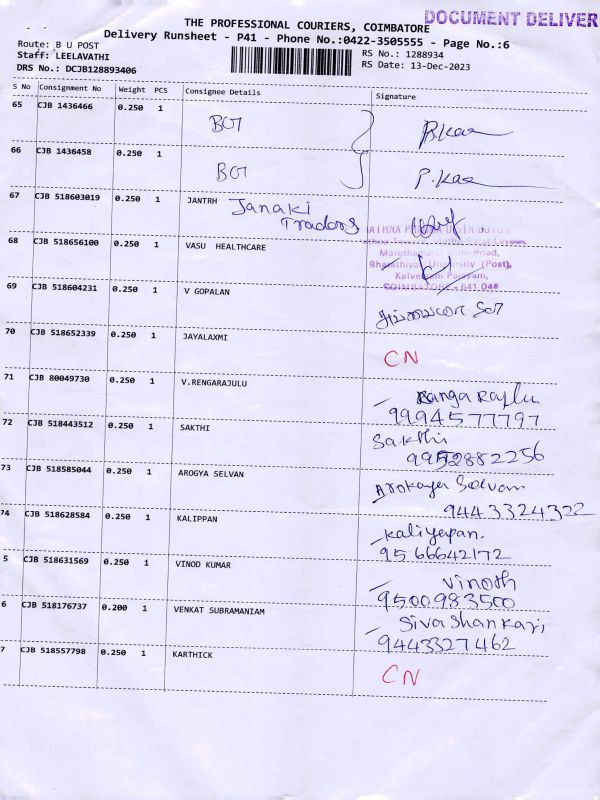 DOCUMENT DELIVER
THE PROFESSIONAL COURIERS, COIMBATORE
Delivery Runsheet - P41 - Phone No.:0422-3505555 - Page No.:6
Route: B U POST
Staff: LEELAVATHI
DRS No.: DCJB128893406
RS No.: 1288934
RS Date: 13-Dec-2023
S No Consignment No Weight PCS Consignee Details Signature
65 CJB 1436466 0.250 1
66 CJB 1436458 0.250 1
67 CJB 518603019 0.250 1 JANTRH Janaki
Tradors
68 CJB 518656100 0.250 1 VASU HEALTHCARE
Road,
Bharathiyar University (Post),
COIMBATORE - 641 046
69 CJB 518604231 0.250 1 V GOPALAN
70 CJB 518652339 0.250 1 JAYALAXMI CN
71 CJB 80049730 0.250 1 V.RENGARAJULU Ranga Rajlu
9994577797
72 CJB 518443512 0.250 1 SAKTHI Sakthi
9952882256
73 CJB 518585044 0.250 1 AROGYA SELVAN Arokaya Selvam
9443324322
74 CJB 518628584 0.250 1 KALIPPAN Kaliyapan.
9566642172
5 CJB 518631569 0.250 1 VINOD KUMAR Vinoth
9500983500
6 CJB 518176737 0.200 1 VENKAT SUBRAMANIAM Sivashankari
9443327462
7 CJB 518557798 0.250 1 KARTHICK CN